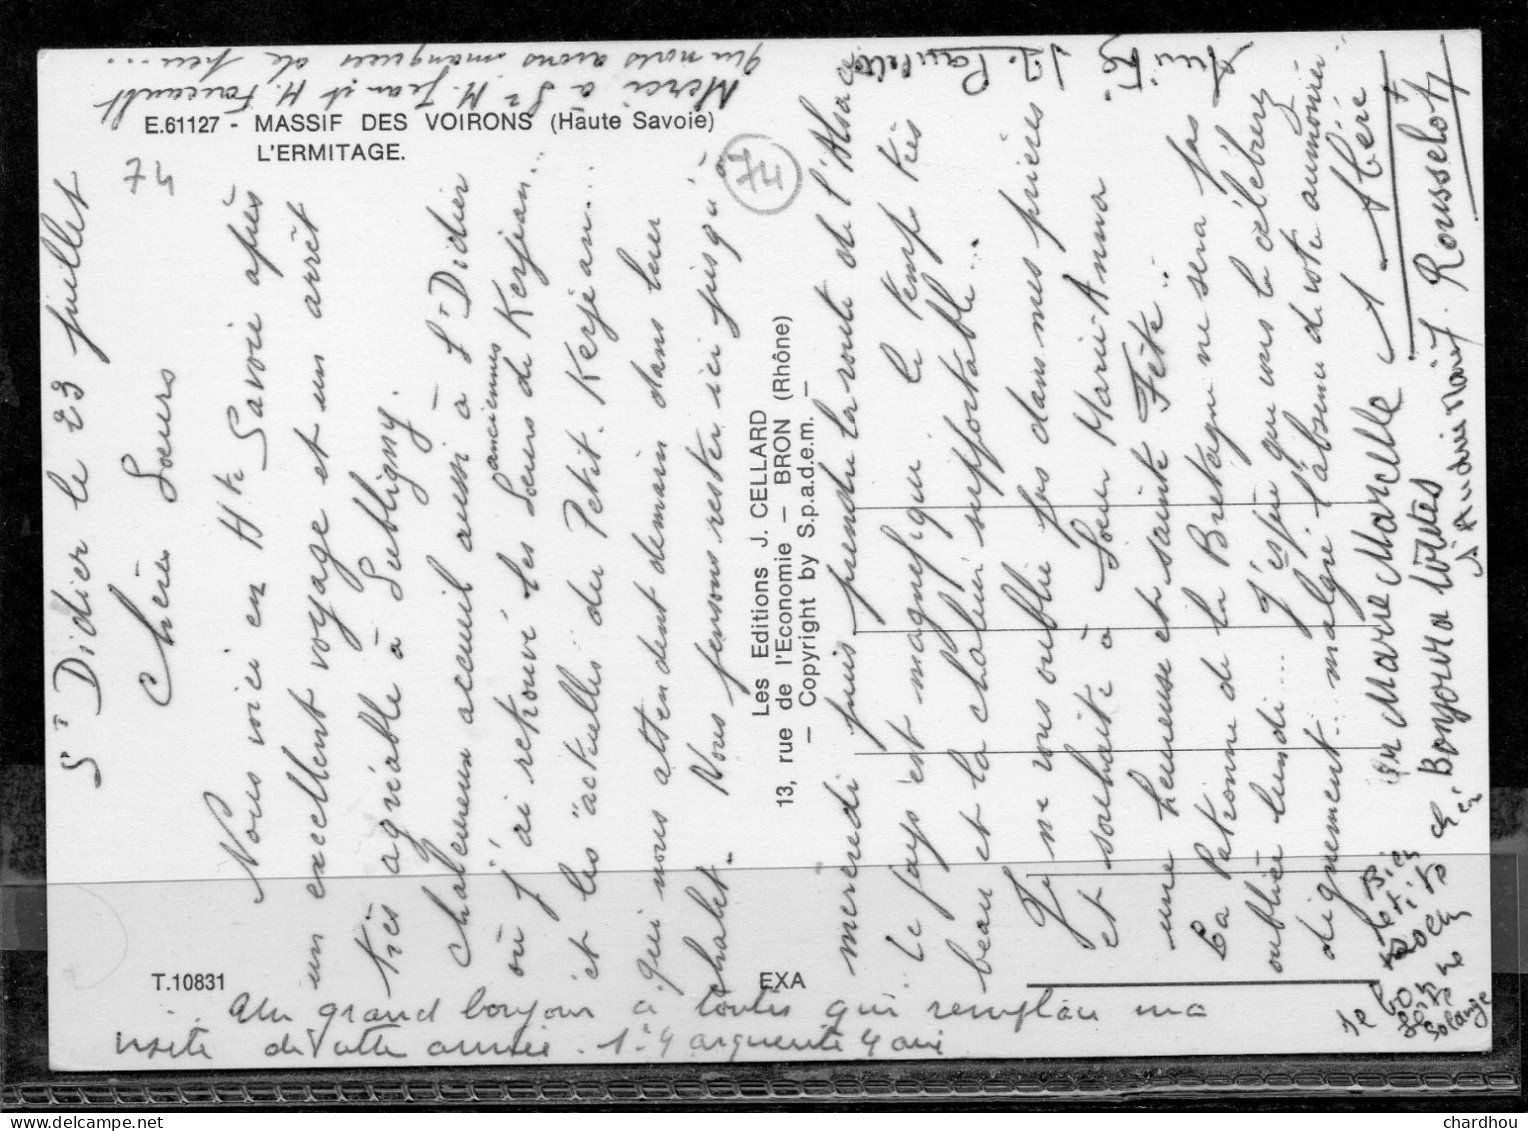 E.61127 - MASSIF DES VOIRONS (Haute Savoie)
L'ERMITAGE.
74
74
St Didier le 23 juillet
Chères Soeurs
Nous voici en Hte Savoie après
un excellent voyage et un arrêt
très agréable à Subligny.
Chaleureux accueil aussi à St Didier
où j'ai retrouvé les anciennes Soeurs de Kerjean..
et les "actuelles" du Petit-Kerjean...
qui nous attendent demain dans leur
chalet. Nous pensons rester ici jusqu'à
mercredi puis prendre la route de l'Alsace.
.. Le pays est magnifique le temps très
beau et la chaleur supportable...
Je ne vous oublie pas dans mes prières
et souhaite à Soeur Marie-Anna
une heureuse et sainte Fête..
La Patronne de la Bretagne ne sera pas
oubliée lundi... J'espère que vous la célébrerez
dignement.. malgré l'absence de votre aumônier..
Sr Marie Marcelle
Bonjour à toutes
Rousselot
Merci à Sr M. Jean et M. Foucault
que nous avons manquées de peu...
Les Editions J. CELLARD
13, rue de l'Economie - BRON (Rhône)
- Copyright by S.p.a.d.e.m. -
T.10831
EXA
... Un grand bonjour à toutes qui remplace ma
visite de cette année.
Solange
chardhou